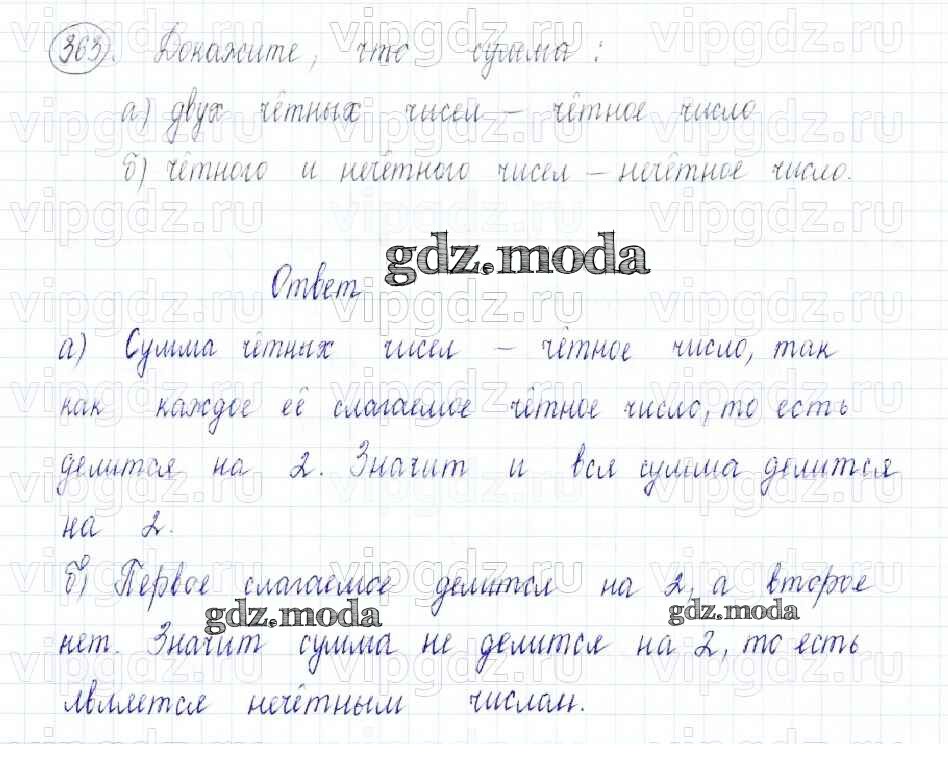 363). Докажите, что сумма:
а) двух чётных чисел – чётное число
б) чётного и нечётного чисел – нечётное число.
gdz.moda
Ответ
а) Сумма чётных чисел – чётное число, так
как каждое её слагаемое чётное число, то есть
делится на 2. Значит и вся сумма делится
на 2.
б) Первое слагаемое делится на 2, а второе
gdz.moda gdz.moda
нет. Значит сумма не делится на 2, то есть
является нечётным числан.
vipgdz.ru